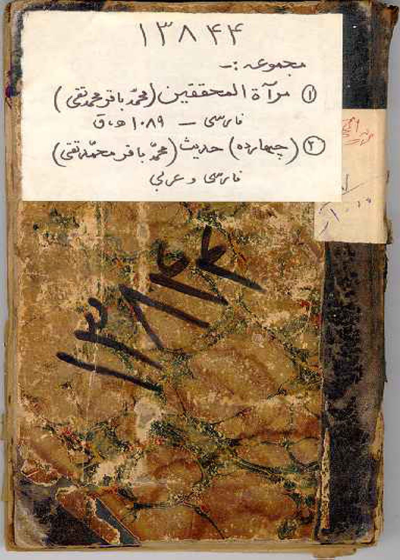 ۱۳۸۴۴
مجموعه :-
① مرآة المحققین (محمد باقر محمد تقی)
فارسی – ۱۰۸۹ ه.ق
② (چهارده) حدیث (محمد باقر محمد تقی)
فارسی و عربی
۱۳۸۴۴